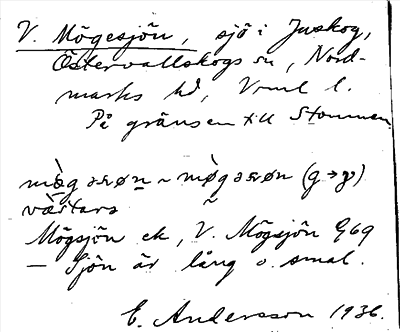 V. Mögesjön, sjö i Juskog,
Östervallskogs sn, Nord-
marks hd, Vrml l.
På gränsen till Stommen
mög əsøn ~ møg əsøn (g→γ)
västars
Mögsjön ek, V. Mögsjön G69
— Sjön är lång o. smal.
E. Andersson 1936.